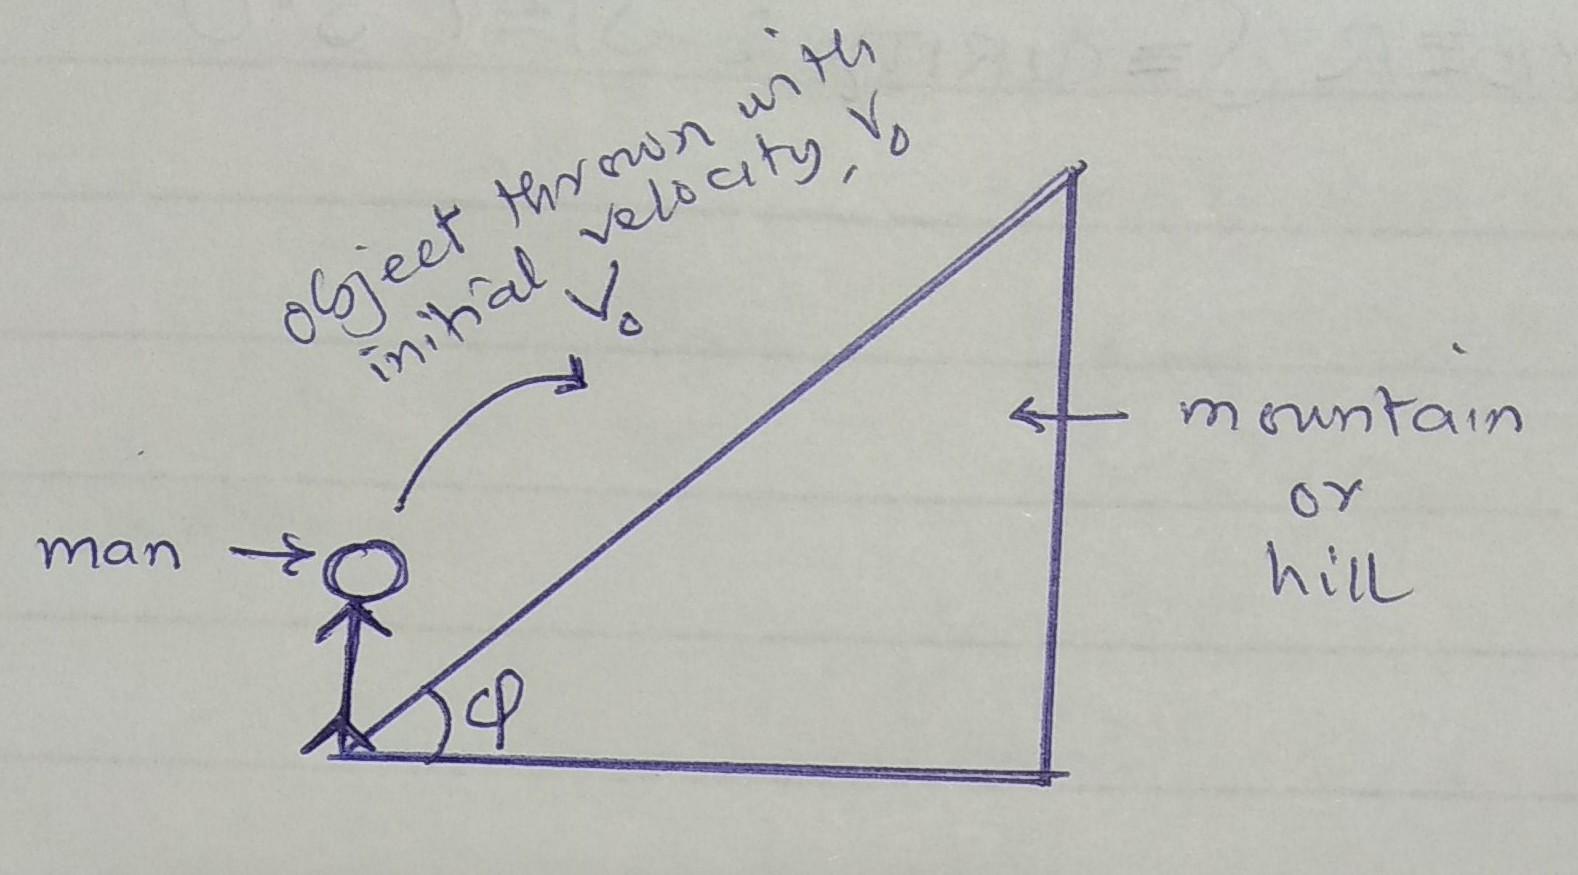 object thrown with
initial velocity, V₀
V₀
man
mountain
or
hill
φ